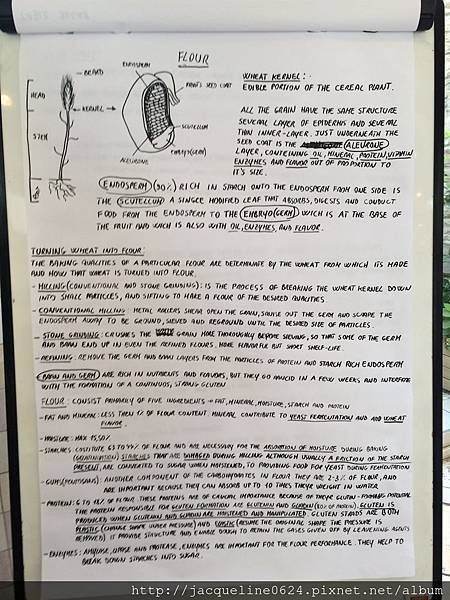 FLOUR
BEARD
HEAD
KERNEL
STEM
ENDOSPERM
FRUIT & SEED COAT
SCUTELLUM
EMBRYO (GERM)
ALEURONE
WHEAT KERNEL:
EDIBLE PORTION OF THE CEREAL PLANT.
ALL THE GRAIN HAVE THE SAME STRUCTURE
SEVERAL LAYER OF EPIDERMIS AND SEVERAL
THIN INNER-LAYER. JUST UNDERNEATH THE
SEED COAT IS THE ALEURONE
LAYER, CONTEINING OIL, MINERAL, PROTEIN, VITAMIN
ENZYMES AND FLAVOR OUT OF PROPORTION TO
IT'S SIZE.
ENDOSPERM (80%) RICH IN STARCH ONTO THE ENDOSPERM FROM ONE SIDE IS
THE SCUTELLUM A SINGLE MODIFIED LEAF THAT ABSORBS, DIGESTS AND CONDUCT
FOOD FROM THE ENDOSPERM TO THE EMBRYO (GERM) WICH IS AT THE BASE OF
THE FRUIT AND WICH IS ALSO WITH OIL, ENZYMES, AND FLAVOR.
TURNING WHEAT INTO FLOUR:
THE BAKING QUALITIES OF A PARTICULAR FLOUR ARE DETERMINATE BY THE WHEAT FROM WHICH IT'S MADE
AND HOW THAT WHEAT IS TURNED INTO FLOUR.
- MILLING (CONVENTIONAL AND STONE GRINDING): IS THE PROCESS OF BREAKING THE WHEAT KERNEL DOWN
INTO SMALL PARTICLES, AND SIFTING TO MAKE A FLOUR OF THE DESIRED QUALITIES
- CONVENTIONAL MILLING: METAL ROLLERS SHEAR OPEN THE GRAIN, SQUEEZE OUT THE GERM AND SCRAPE THE
ENDOSPERM AWAY TO BE GROUND, SIEVED AND REGROUND UNTIL THE DESIRED SIZE OF PARTICLES.
- STONE GRINDING: CRUSHES THE GRAIN MORE THOROUGHLY BEFORE SIEVING, SO THAT SOME OF THE GERM
AND BRAN END UP IN EVEN THE REFINED FLOURS. MORE FLAVORFUL BUT SHORT SHELF-LIFE.
- REFINING: REMOVE THE GERM AND BRAN LAYERS FROM THE PARTICLES OF PROTEIN AND STARCH RICH ENDOSPERM
BRAN AND GERM ARE RICH IN NUTRIENTS AND FLAVORS, BUT THEY GO RANCID IN A FEW WEEKS AND INTERFERE
WITH THE FORMATION OF A CONTINUOS, STRONG GLUTEN
FLOUR: CONSIST PRIMARILY OF FIVE INGREDIENTS → FAT, MINERAL, MOISTURE, STARCH AND PROTEIN
- FAT AND MINERAL: LESS THEN 1% OF FLOUR CONTENT. MINERAL CONTRIBUTE TO YEAST FERMENTATION AND ADD WHEAT
FLAVOR.
- MOISTURE: MAX 15,50%
- STARCHES: COSTITUTE 63 TO 77% OF FLOUR AND ARE NECESSARY FOR THE ABSORTION OF MOISTURE DURING BAKING
(GELATINIZATION) STARCHES THAT ARE DAMAGED DURING MILLING ALTHOUGH USUALLY A FRACTION OF THE STARCH
PRESENT, ARE CONVERTED TO SUGAR WHEN MOISTENED, TO PROVIDING FOOD FOR YEAST DURING FERMENTATION
- GUMS (PENTOSANS): ANOTHER COMPONENT OF THE CARBOHYDRATES IN FLOUR THEY ARE 2-3% OF FLOUR, AND
ARE IMPORTANT BECAUSE THEY CAN ABSORB UP TO 10 TIMES THEYRE WEIGHT IN WATER
- PROTEIN: 6 TO 18% OF FLOUR. THESE PROTEINS ARE OF CRUCIAL IMPORTANCE BECAUSE OF THEYRE GLUTEN-FORMING POTENTIAL
THE PROTEIN RESPONSIBLE FOR GLUTEN FORMATION ARE GLUTENIN AND GLIADIN (80% OF PROTEIN). GLUTEN IS
PRODUCED WHEN GLUTENIN AND GLIADIN ARE MOISTENED AND MANIPULATED. GLUTEN STANDS ARE BOTH
PLASTIC (CHANGE SHAPE UNDER PRESSURE) AND ELASTIC (RESUME THE ORIGINAL SHAPE THE PRESSURE IS
REMOVED) IT PROVIDE STRUCTURE AND ENABLE DOUGH TO RETAIN THE GASES GIVEN OFF BY LEAVENING AGENTS
- ENZYMES: AMYLASE, LIPASE AND PROTEASE, ENZYMES ARE IMPORTANT FOR THE FLOUR PERFORMANCE. THEY HELP TO
BREAK DOWN STARCHES INTO SUGAR.
http://jacqueline0624.pixnet.net/album